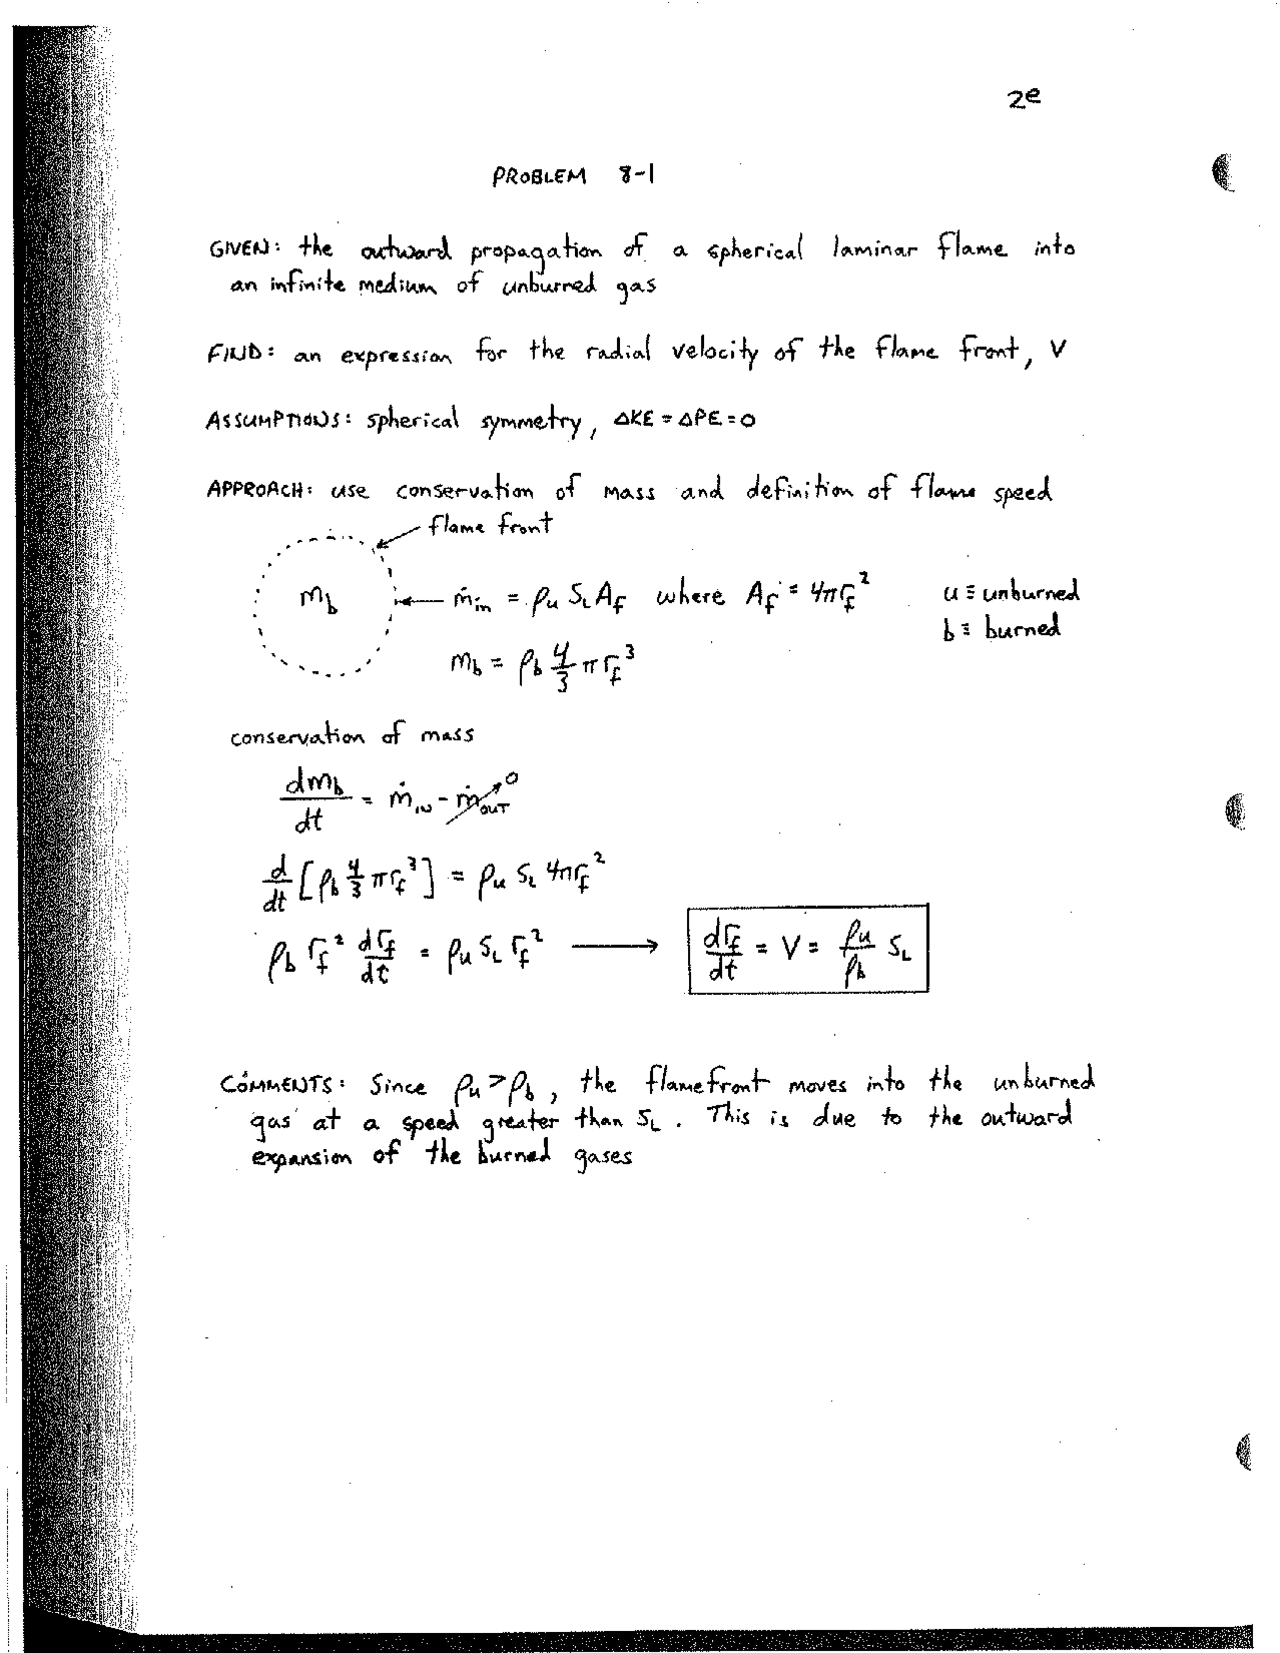 2e
PROBLEM 8-1
GIVEN: the outward propagation of a spherical laminar flame into
an infinite medium of unburned gas
FIND: an expression for the radial velocity of the flame front, V
ASSUMPTIONS: spherical symmetry, ΔKE = ΔPE = 0
APPROACH: use conservation of mass and definition of flame speed
flame front
m_b ṁ_in = ρ_u S_L A_f where A_f = 4πr_f² u ≡ unburned
b ≡ burned
m_b = ρ_b 4/3 π r_f³
conservation of mass
dm_b/dt = ṁ_IN - ṁ_OUT 0
d/dt [ρ_b 4/3 π r_f³] = ρ_u S_L 4πr_f²
ρ_b r_f² dr_f/dt = ρ_u S_L r_f² → dr_f/dt = V = ρ_u/ρ_b S_L
COMMENTS: Since ρ_u > ρ_b, the flamefront moves into the unburned
gas at a speed greater than S_L. This is due to the outward
expansion of the burned gases